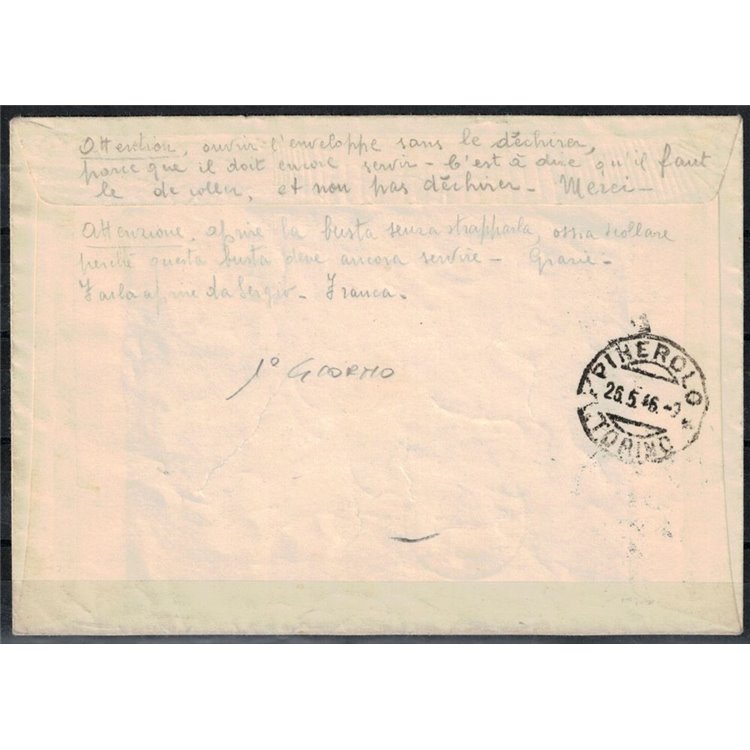 Attention, ouvrir l'enveloppe sans le déchirer,
parce que il doit encore servir - C'est à dire qu'il faut
le decoller, et non pas déchirer - Merci -
Attenzione, aprire la busta senza strapparla, ossia scollare
perché questa busta deve ancora servire - Grazie -
Farla aprire da Sergio - Franca -
1° GIORNO
PINEROLO
26.5.46.-9
TORINO